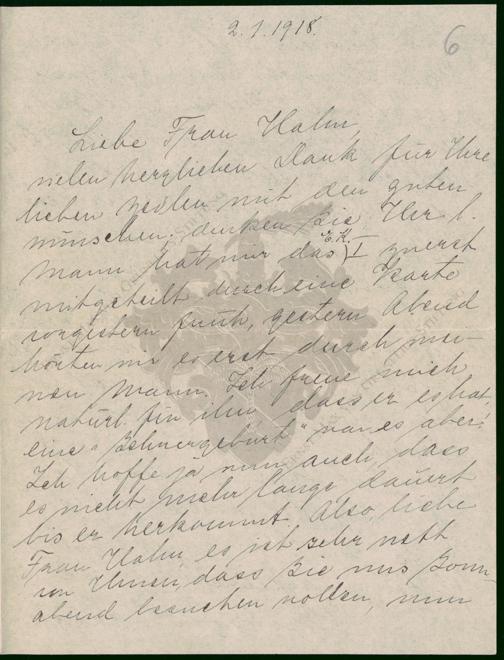 2.1.1918.
6
Liebe Frau Hahn,
vielen herzlichen Dank für Ihre
lieben Zeilen mit den guten
Wünschen. denken Sie Ihr l.
Mann hat mir das E.K. I zuerst
mitgeteilt durch eine Karte
vorgestern früh, gestern Abend
hörten wir es erst durch mei-
nen Mann. Ich freue mich
natürl. für ihn, dass er es hat,
eine "Schwergeburt" war es aber!
Ich hoffe ja nun auch, dass
es nicht mehr lange dauert
bis er herkommt. Also liebe
Frau Hahn, es ist sehr nett
von Ihnen, dass Sie uns Sonn-
abend besuchen wollen, nun